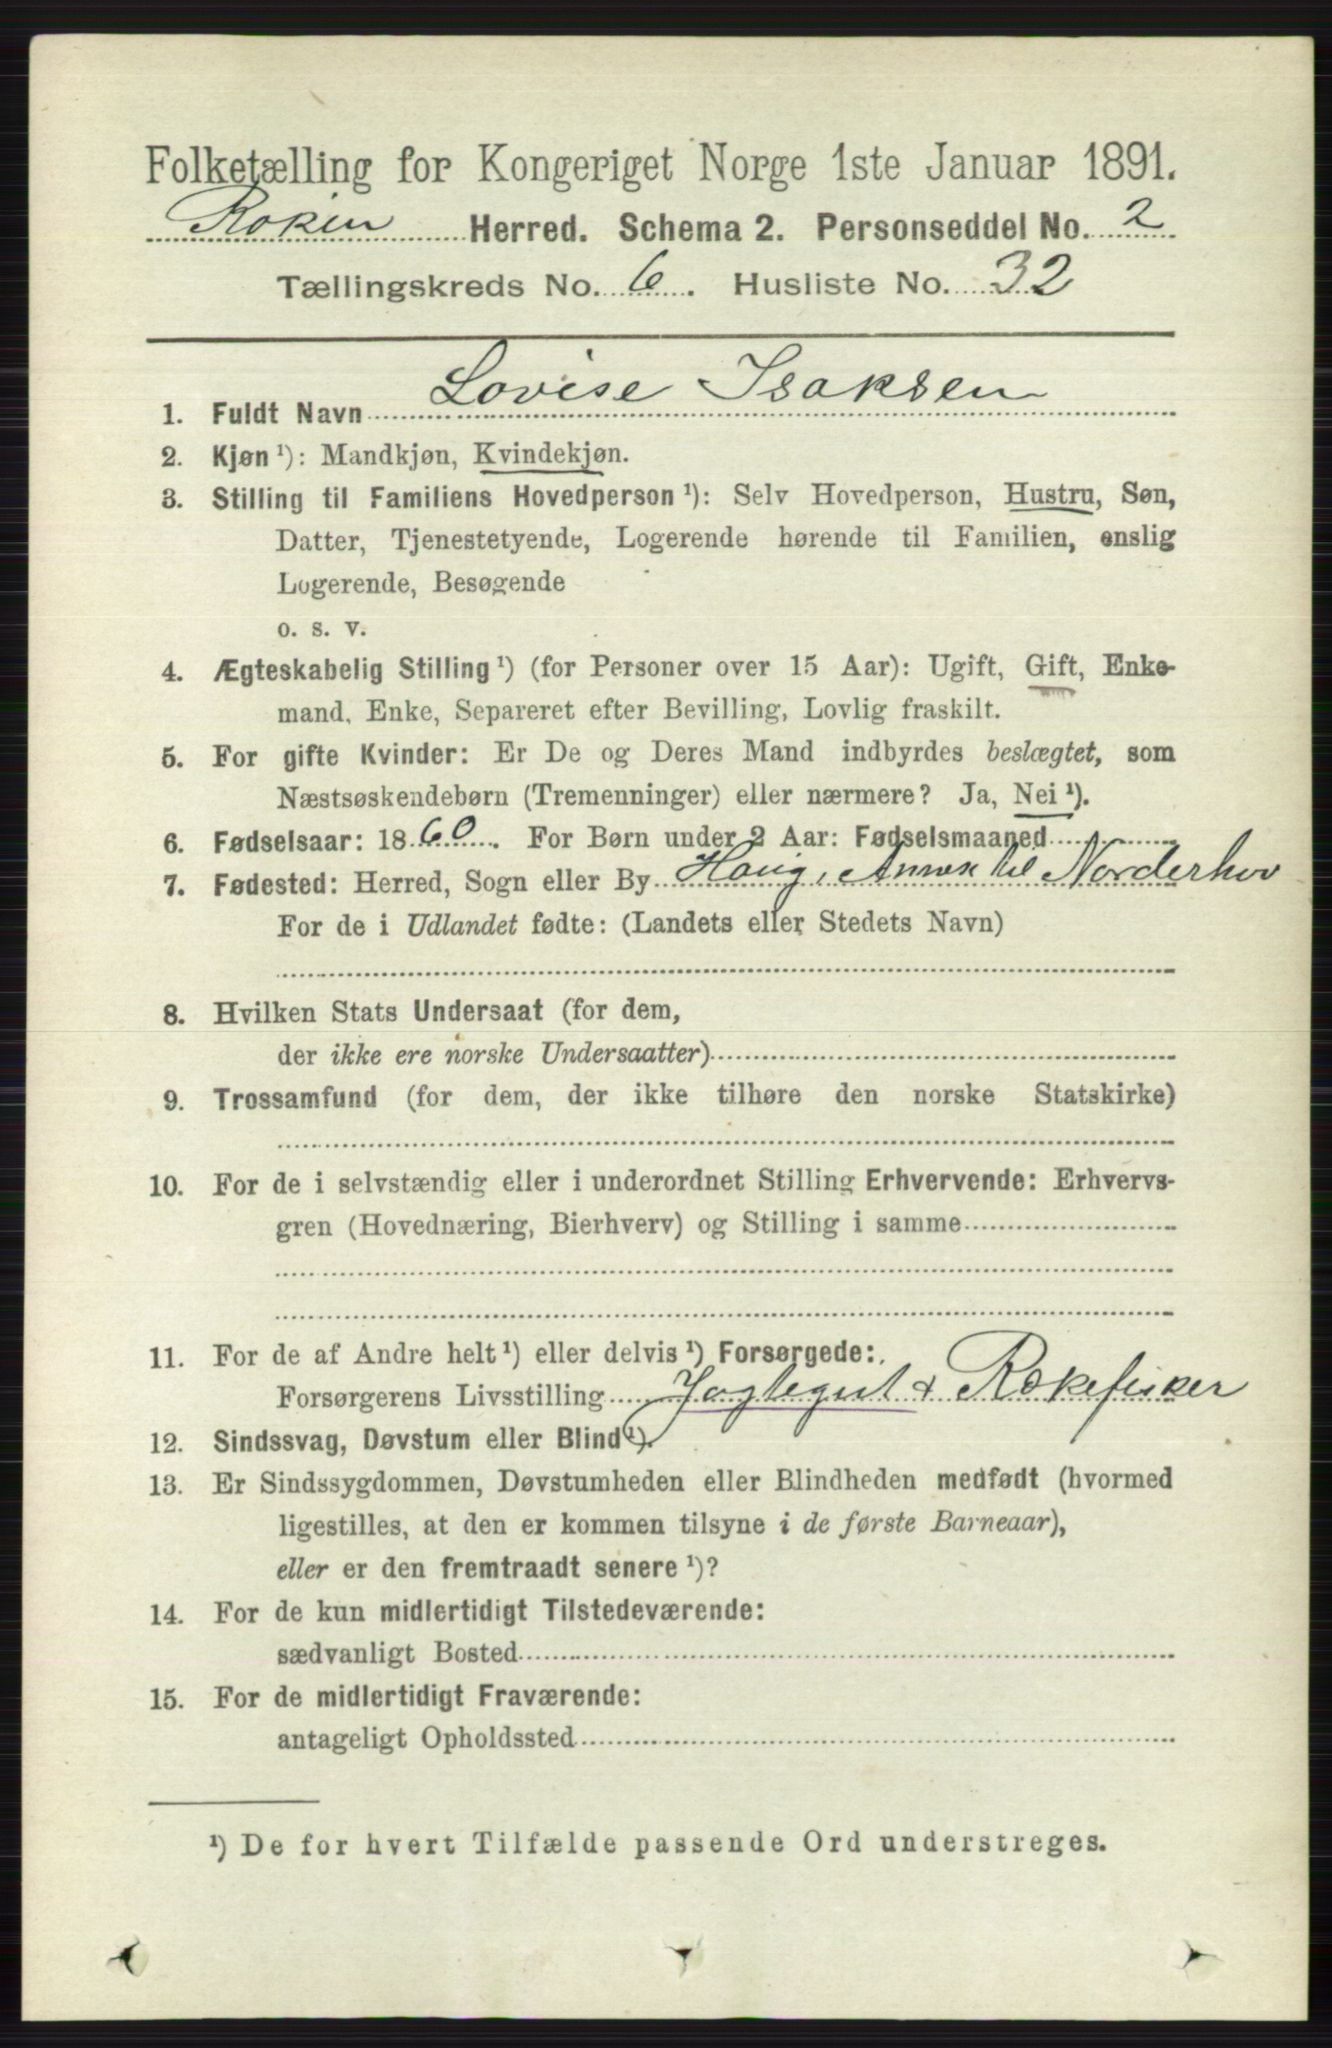 Folketælling for Kongeriget Norge 1ste Januar 1891.
Røken Herred. Schema 2. Personseddel No. 2
Tællingskreds No. 6. Husliste No. 32
1. Fuldt Navn Lovise Isaksen
2. Kjøn ¹): Mandkjøn, Kvindekjøn.
3. Stilling til Familiens Hovedperson ¹): Selv Hovedperson, Hustru, Søn,
Datter, Tjenestetyende, Logerende hørende til Familien, enslig
Logerende, Besøgende
o. s. v.
4. Ægteskabelig Stilling ¹) (for Personer over 15 Aar): Ugift, Gift, Enke-
mand, Enke, Separeret efter Bevilling, Lovlig fraskilt.
5. For gifte Kvinder: Er De og Deres Mand indbyrdes beslægtet, som
Næstsøskendebørn (Tremenninger) eller nærmere? Ja, Nei ¹).
6. Fødselsaar: 1860. For Børn under 2 Aar: Fødselsmaaned
7. Fødested: Herred, Sogn eller By Houg, Annex til Norderhov
For de i Udlandet fødte: (Landets eller Stedets Navn)
8. Hvilken Stats Undersaat (for dem,
der ikke ere norske Undersaatter)
9. Trossamfund (for dem, der ikke tilhøre den norske Statskirke)
10. For de i selvstændig eller i underordnet Stilling Erhvervende: Erhvervs-
gren (Hovednæring, Bierhverv) og Stilling i samme
11. For de af Andre helt ¹) eller delvis ¹) Forsørgede:
Forsørgerens Livsstilling Jagtegut & Rækefisker
12. Sindssvag, Døvstum eller Blind ¹).
13. Er Sindssygdommen, Døvstumheden eller Blindheden medfødt (hvormed
ligestilles, at den er kommen tilsyne i de første Barneaar),
eller er den fremtraadt senere ¹)?
14. For de kun midlertidigt Tilstedeværende:
sædvanligt Bosted
15. For de midlertidigt Fraværende:
antageligt Opholdssted
¹) De for hvert Tilfælde passende Ord understreges.